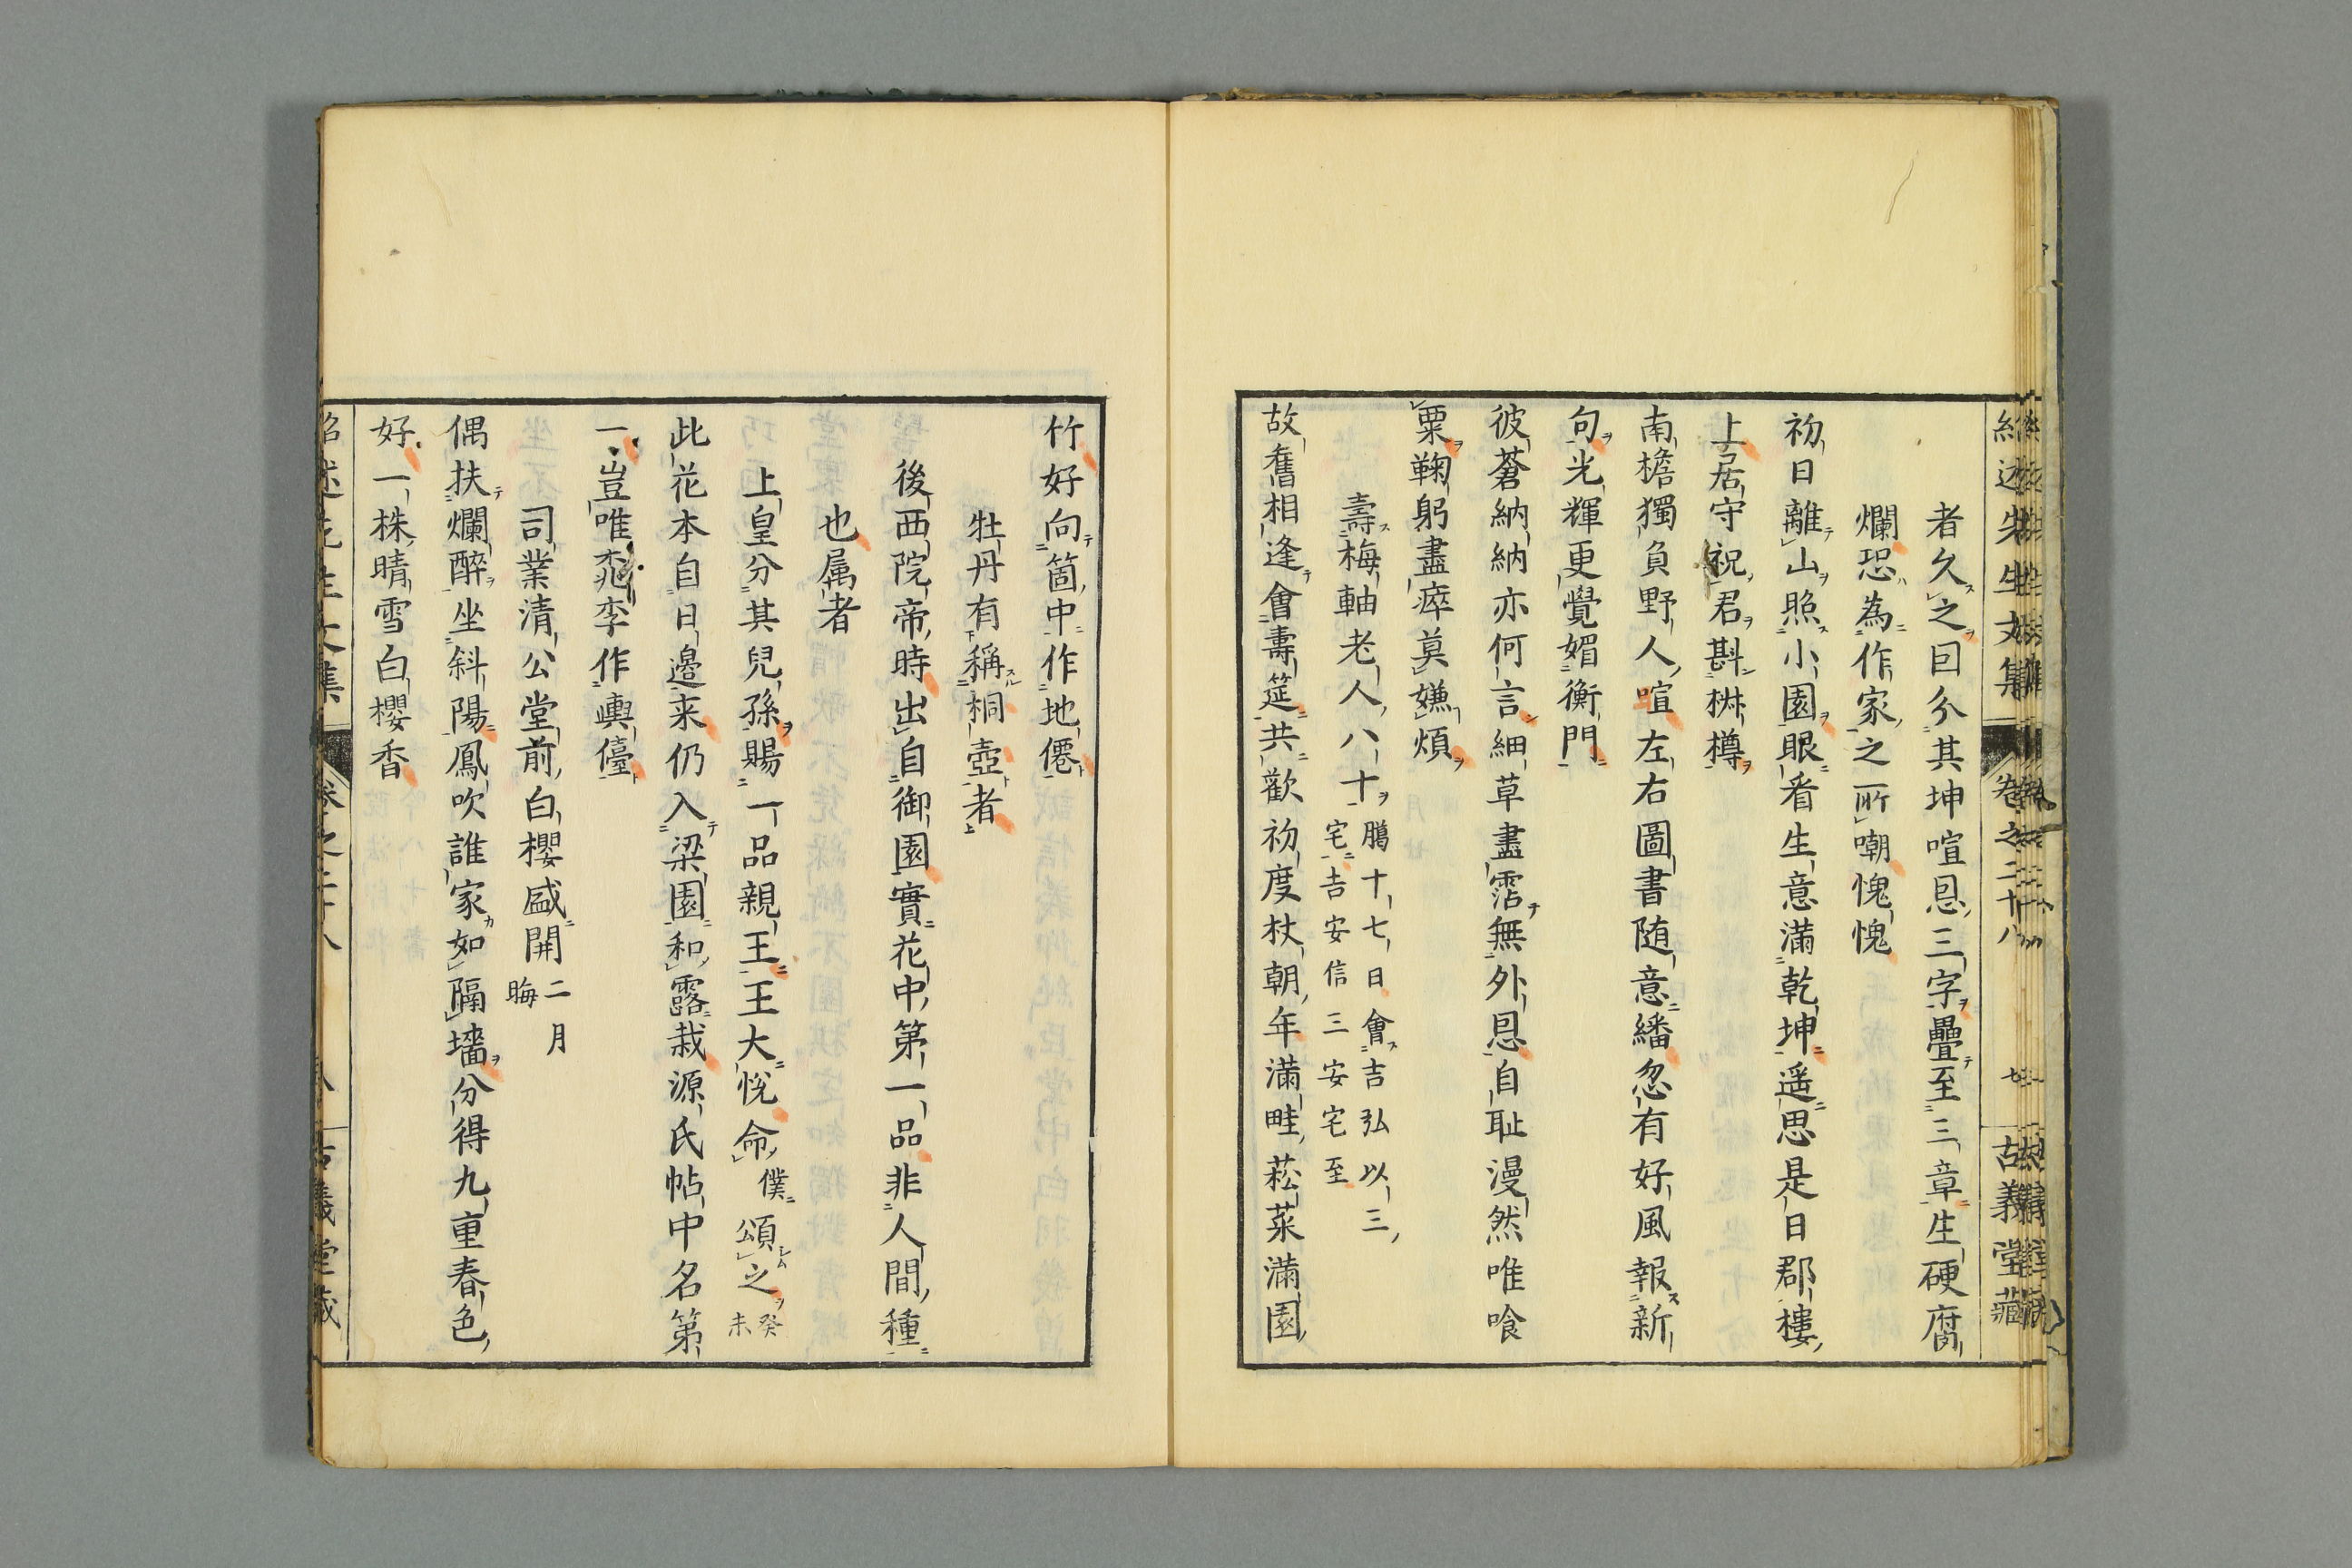 者久之因分其坤喧恩三字疊至三章生硬腐
爛恐為作家之所嘲愧愧
初日離山照小園眼看生意滿乾坤遥思是日郡樓
上居守祝君斟桝樽
南檐獨負野人喧左右圖書随意繙忽有好風報新
句光輝更覺媚衡門
彼蒼納納亦何言細草盡霑無外恩自耻漫然唯喰
粟鞠躬盡瘁莫嫌煩
壽梅軸老人八十臈十七日會吉弘以三
宅吉安信三安宅至
故舊相逢會壽筵共歡初度杖朝年滿畦菘菜滿園
竹好向箇中作地僊
牡丹有稱桐壺者
後西院帝時出自御園實花中第一品非人間種
也属者
上皇分其兒孫賜一品親王王大悅命僕頌之癸
未
此花本自日邉来仍入梁園和露栽源氏帖中名第
一豈唯桃李作輿儓
司業清公堂前白櫻盛開二月
晦
偶扶爛醉坐斜陽鳳吹誰家如隔墻分得九重春色
好一株晴雪白櫻香
紹述先生文集 卷之二十八 古義堂藏